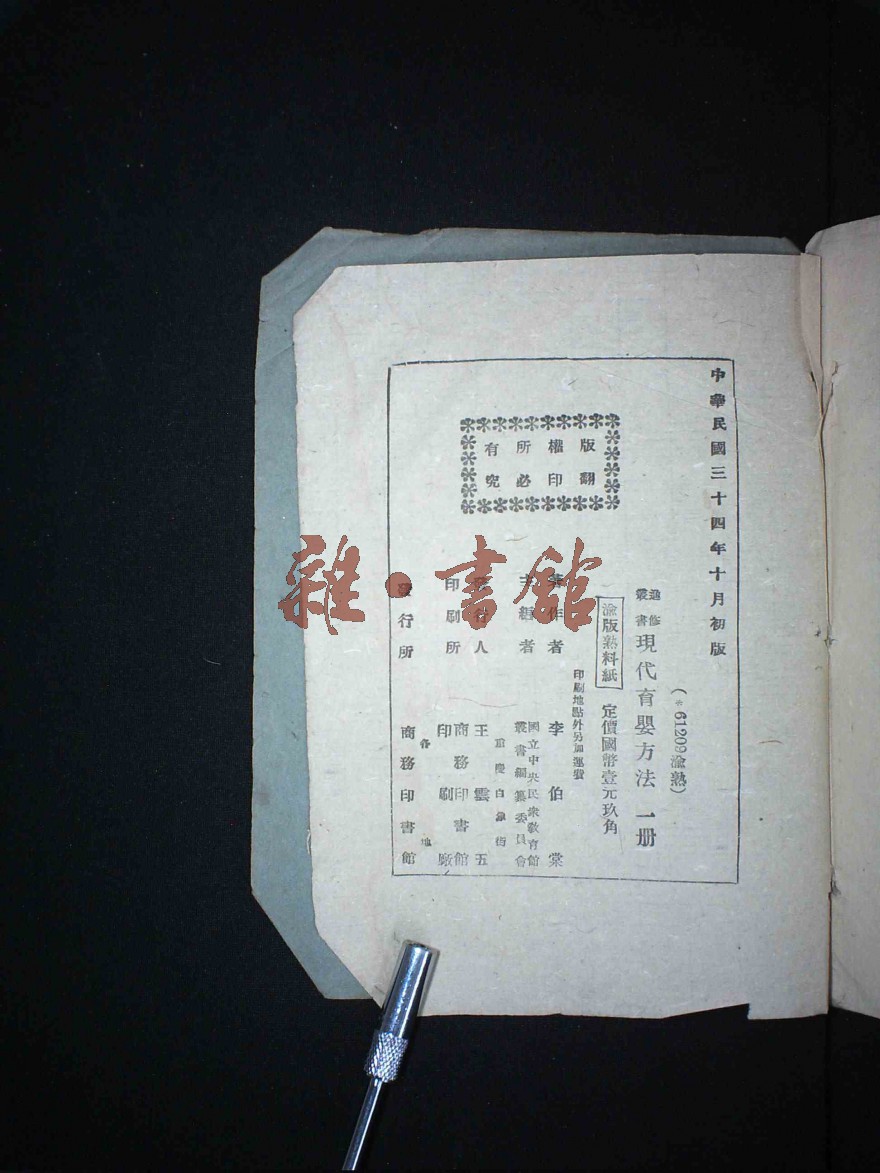 中華民國三十四年十月初版
(*61209渝熟)
進修
叢書
現代育嬰方法 一册
渝版熟料紙
定價國幣壹元玖角
印刷地點外另加運費
版權所有
翻印必究
著作者 李伯棠
主編者 國立中央民衆教育館
叢書編纂委員會
發行人 王雲五
重慶白象街
印刷所 商務印書館
印刷廠
各地
發行所 商務印書館
雜·書館